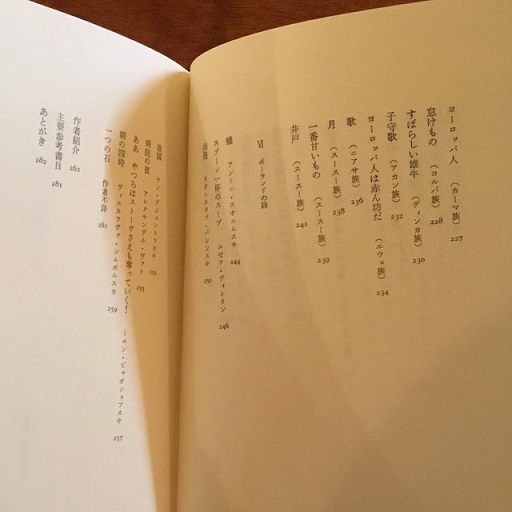 ヨーロッパ人 (カーマ族) 227
怠けもの (コルバ族) 228
すばらしい雄牛 (ディンカ族) 230
子守歌 (アカン族) 232
ヨーロッパ人は赤ん坊だ (エウェ族) 234
歌 (ニアサ族) 236
月 (スースー族) 238
一番甘いもの (スースー族) 239
井戸 (スースー族) 241
VI ポーランドの詩
嘘 アントニ・スオニムスキ 244
スプーン一杯のスープ ユゼフ・ヴィトリン 246
スタニスワフ・バリンスキ 250
故園 ヤン・ブジェンコフスキ 252
病院の夜 アレクサンデル・ヴァト 255
ああ、やつらはストーヴさえも奪っていく! ミロン・ビャウォシェフスキ 257
朝の四時 ヴィスワヴァ・シムボルスカ 259
一つの石 作者不詳 261
作者紹介 262
主要参考書目 281
あとがき 282